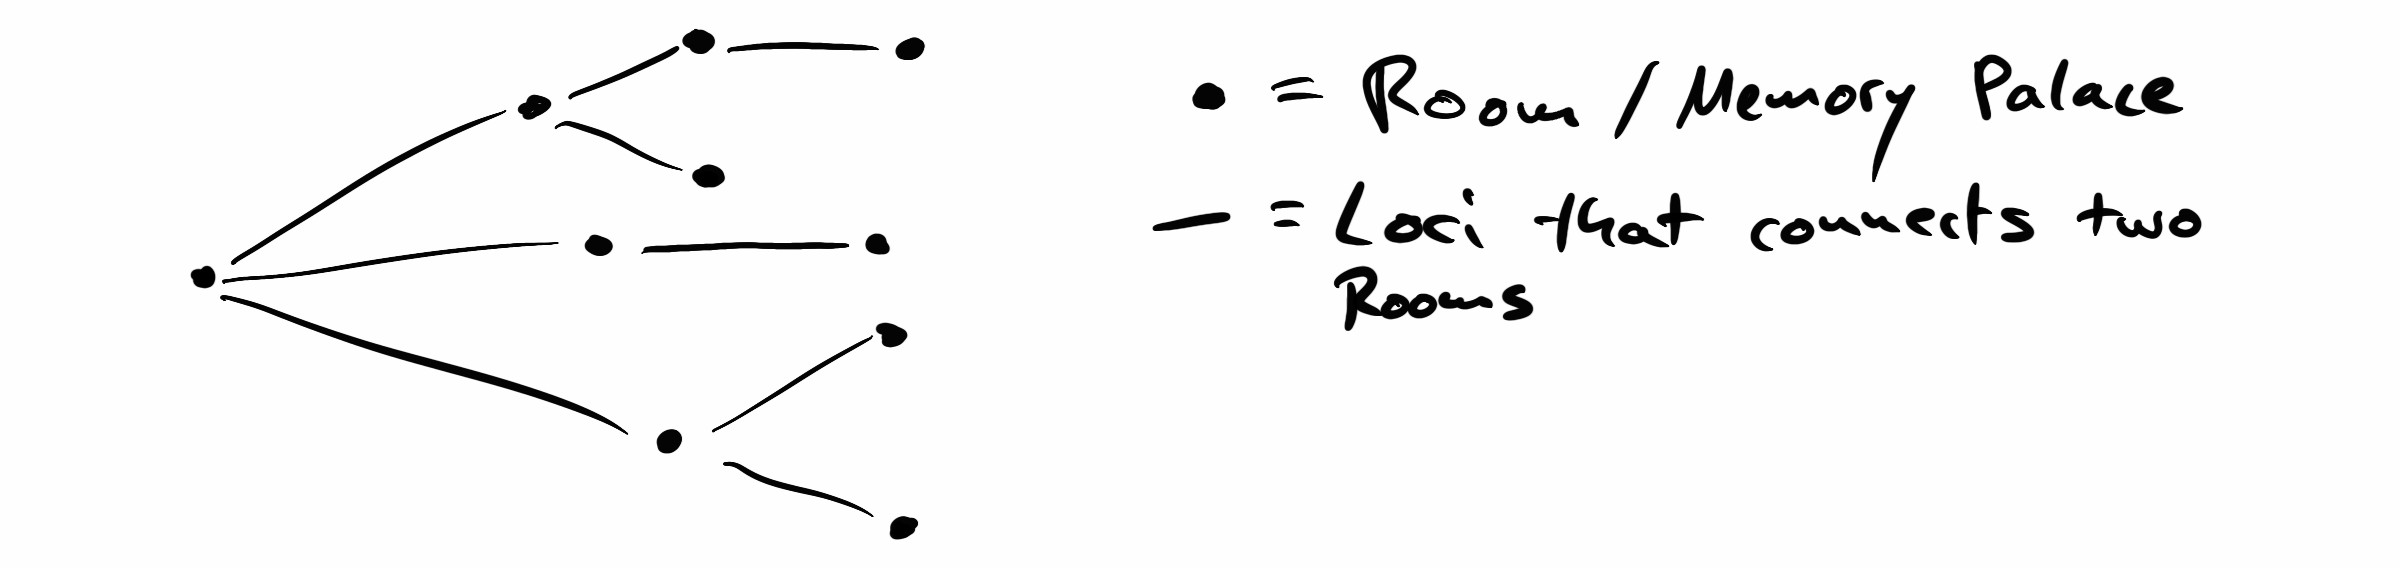 • = Room / Memory Palace
— = Loci that connects two
Rooms